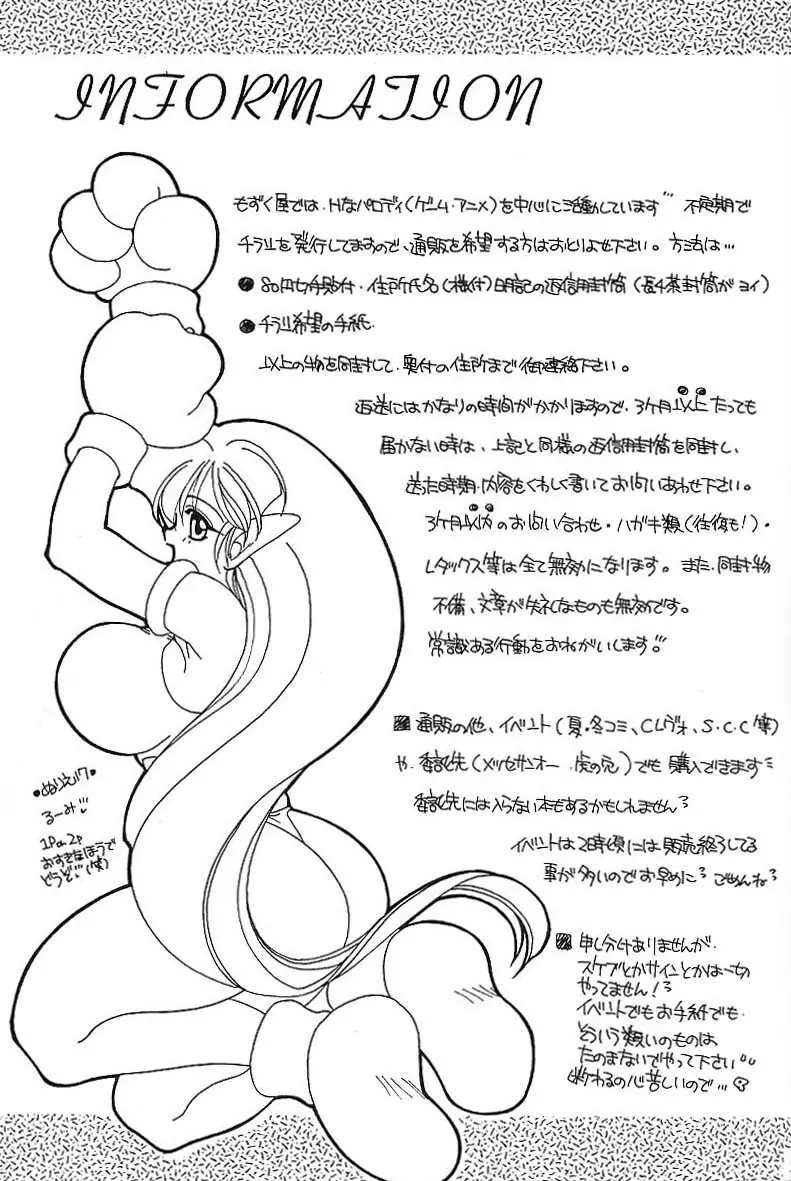 INFORMATION
もずく屋では、Hなパロディ(ゲーム・アニメ)を中心に活動しています 不定期で
チラシを発行してますので、通販を希望する方はおとりよせ下さい。方法は…
●80円切手貼付・住所氏名(様付)明記の返信用封筒(長4茶封筒がヨイ)
●チラシ希望の手紙.
以上の物を同封して、奥付の住所まで御連絡下さい。
返送にはかなりの時間がかかりますので、3ケ月以上たっても
届かない時は、上記と同様の返信用封筒を同封し、
送た時期・内容をくわしく書いてお問いあわせ下さい。
3ケ月以内のお問い合わせ・ハガキ類(往復も!)・
Lタックス等は全て無効になります。また、同封物
不備、文章が失礼なものも無効です。
常識ある行動をおねがいします
■通販の他、イベント(夏・冬コミ、Cレヴォ、S.C.C等)
や 委託先(メッセサンオー 虎の穴)でも 購入できます
委託先には入らない本もあるかもしれません
イベントは2時頃には販売終了してる
事が多いのでお早めに ごめんね
●ぬりえ17●
るーみ
1Por2p
おすきなほうで
どうぞ(笑)
■申し分けありませんが、
スケブとかサインとかは一切
やってません!
イベントでもお手紙でも、
そういう類いのものは
たのまないでやって下さい
断わるの心苦しいので…